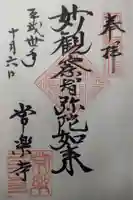 奉拝
妙観察智弥陀如来
平成廿年
十月六日
常楽寺